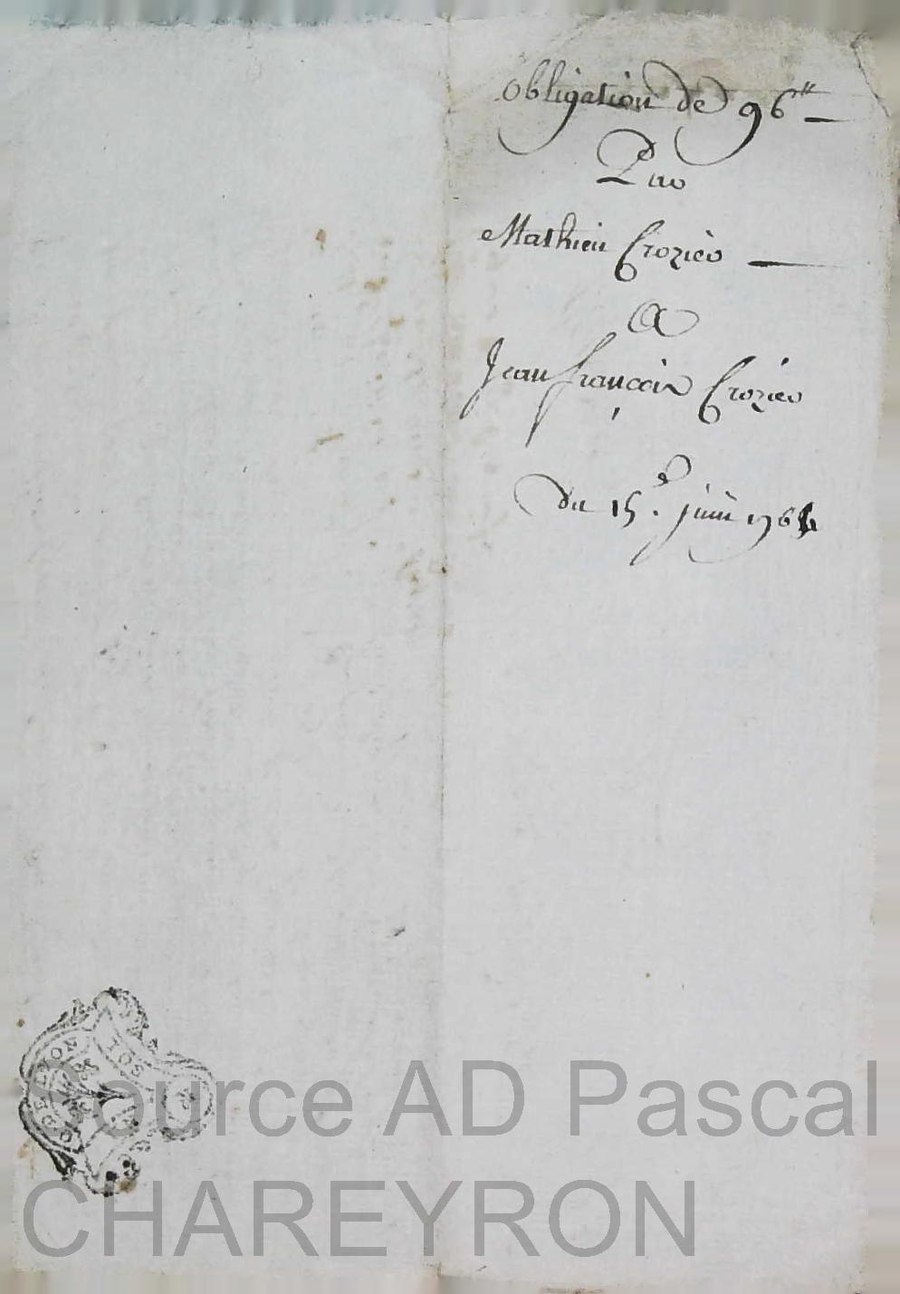 obligation de 96ᵗᵗ
Par
Mathieu Crozier
a
Jean françois Crozier
du 15.ᵉ juin 1764
G DE LYON
SOL
Source AD Pascal
CHAREYRON